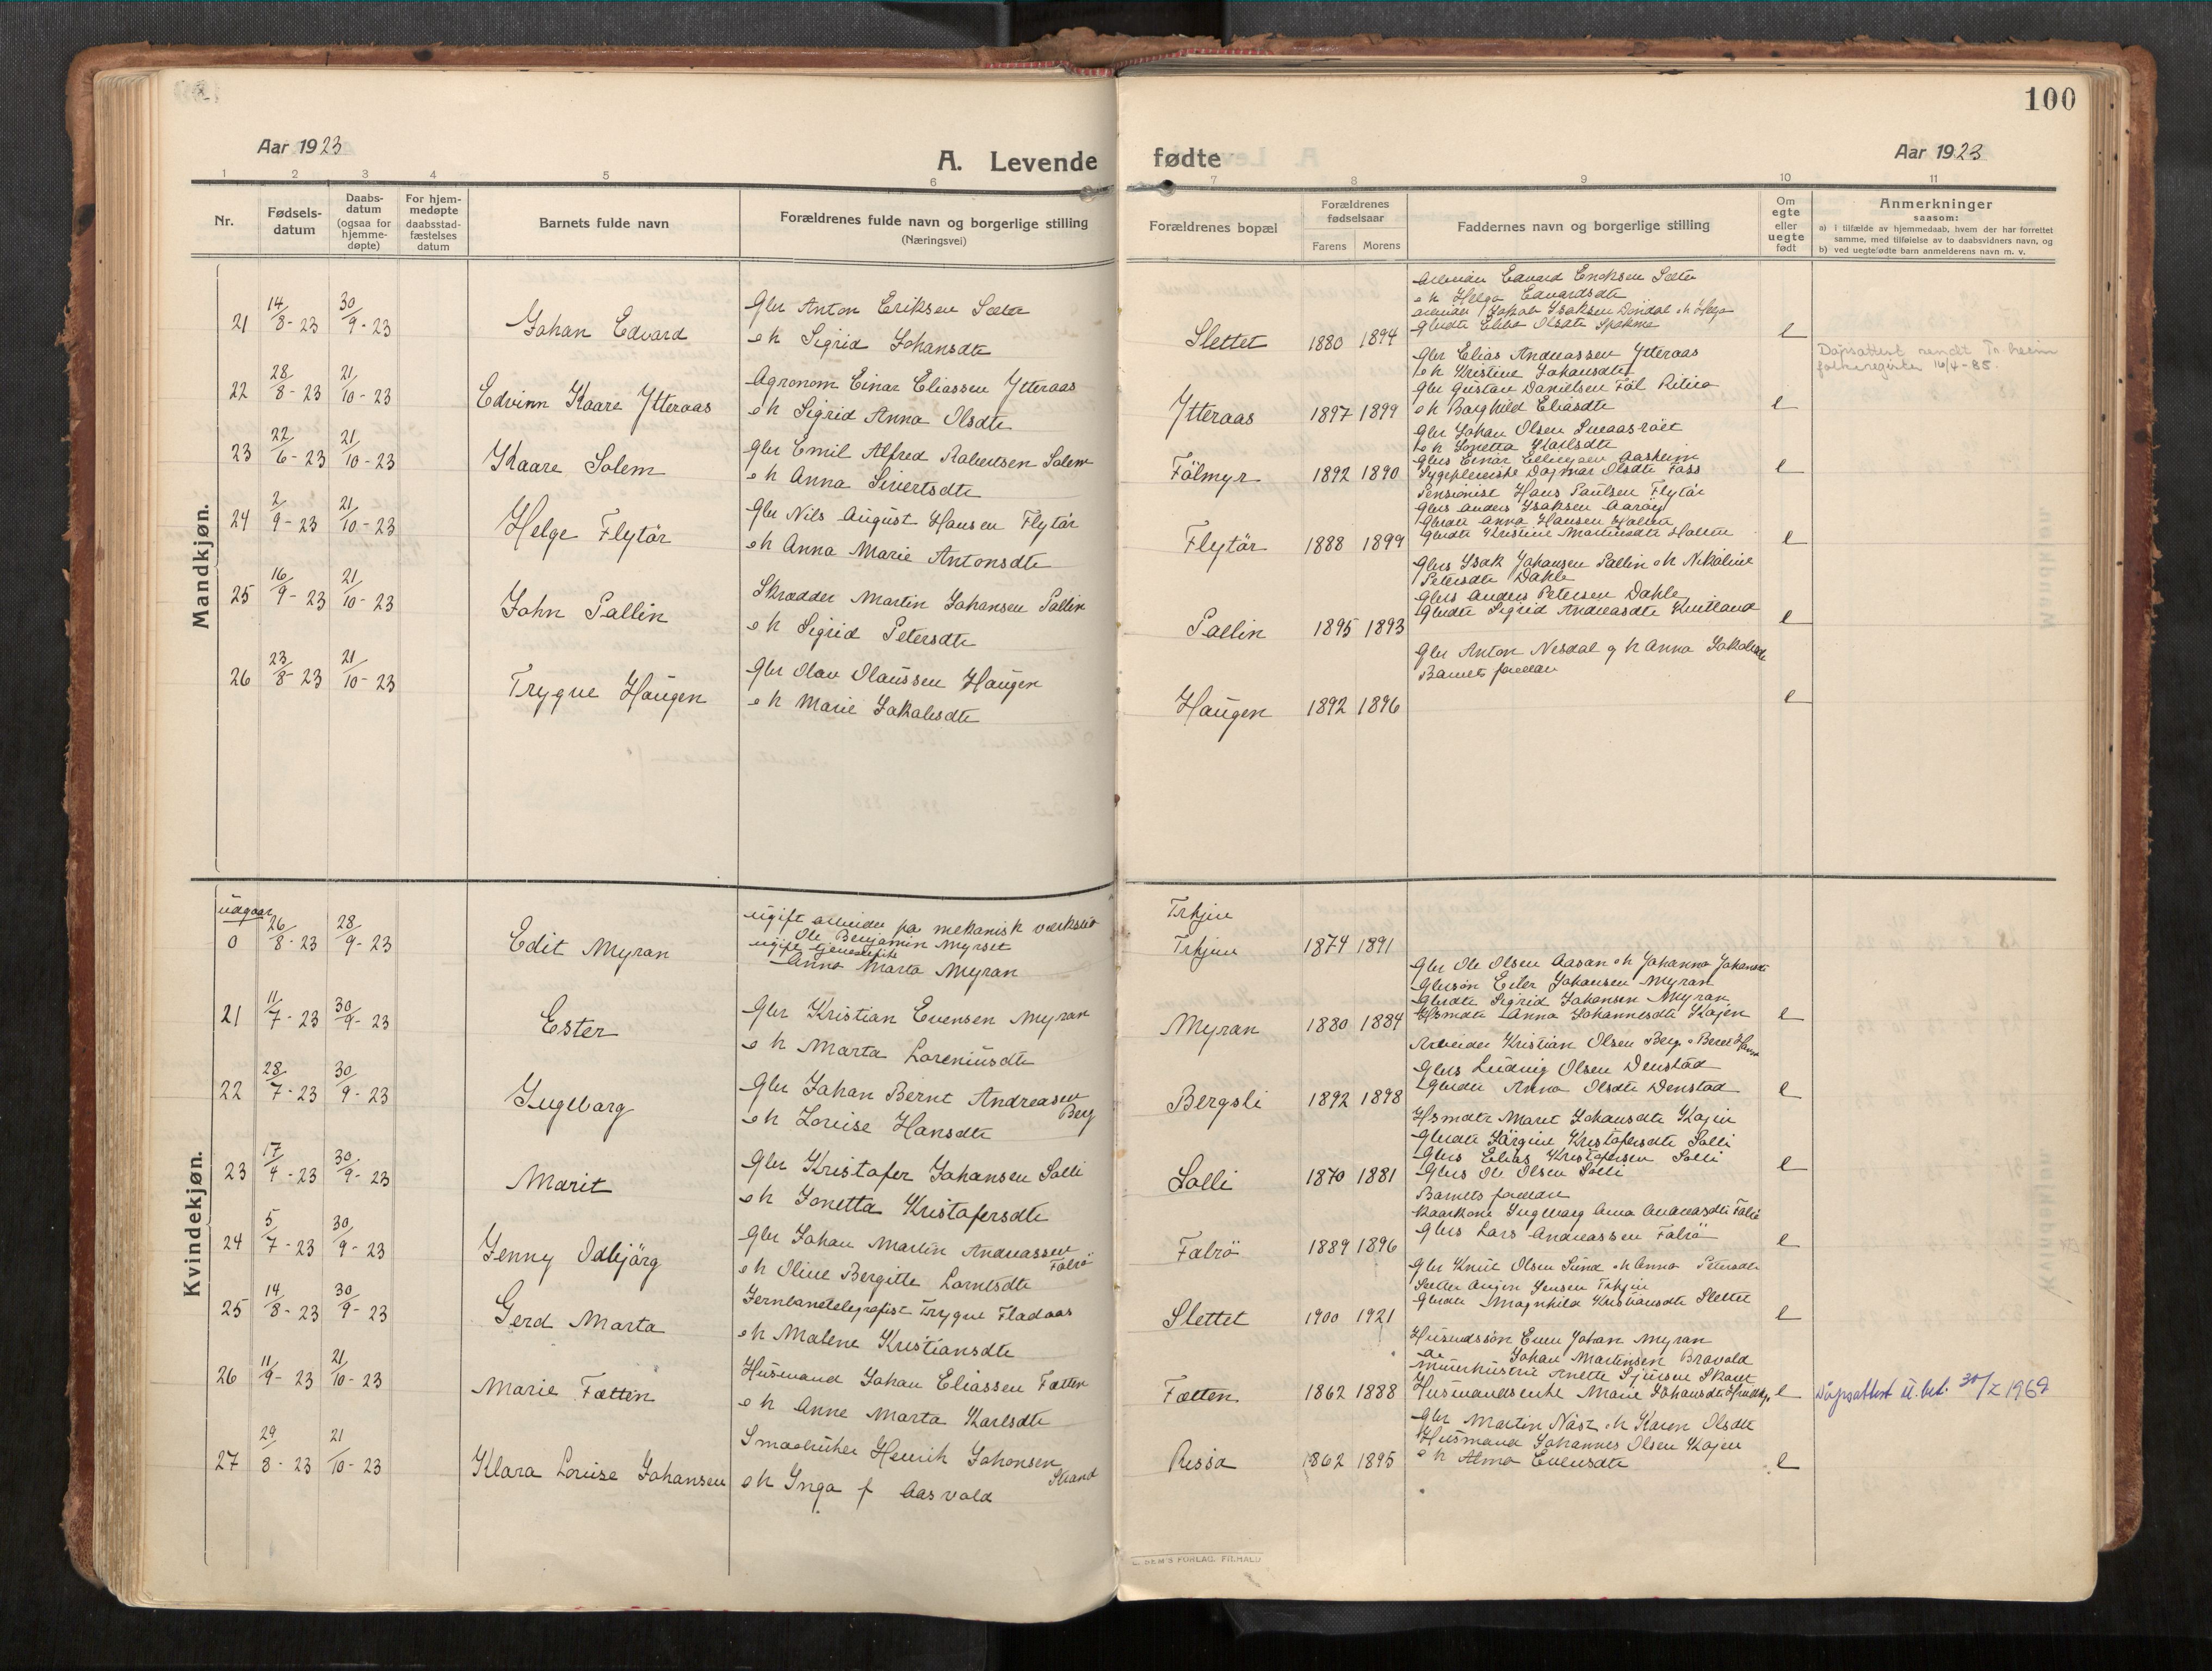 100
Aar 1923
A. Levende fødte
Aar 1923
1 2 3 4 5 6 7 8 9 10 11
Nr.
Fødsels-
datum
Daabs-
datum
(ogsaa for
hjemme-
døpte)
For hjem-
medøpte
daabsstad-
fæstelses
datum
Barnets fulde navn
Forældrenes fulde navn og borgerlige stilling
(Næringsvei)
Forældrenes bopæl
Forældrenes
fødselsaar
Farens Morens
Faddernes navn og borgerlige stilling
Om
egte
eller
uegte
født
Anmerkninger
saasom:
a) i tilfælde av hjemmedaab, hvem der har forrettet
samme, med tilføielse av to daabsvidners navn, og
b) ved uegtefødte barn anmelderens navn m. v.
Mandkjøn.
21 14/8 - 23 30/9 - 23 Johan Edvard
Gbr Anton Eriksen Sæter
o h Sigrid Johansdtr
Slettet 1880 1894
Edvard Eriksen Sæter
o h Helga Edvardsdtr
e
22 28/8 - 23 21/10 - 23 Edvinn Kaare Ytteraas
Agronom Einar Eliassen Ytteraas
o h Sigrid Anna Olsdtr
Ytteraas 1897 1899
Gbr Elias Andreassen Ytteraas
o h Kristine Johansdtr
Gbr Gustav Danielsen Føl
o h Borghild Eliasdtr
e
Døpsattest sendt Tr.heim
folkeregister 16/4-85.
23 22/6 - 23 21/10 - 23 Kaare Solem
Gbr Emil Alfred Robertsen Solem
o h Anna Sivertsdtr
Følmyr 1892 1890
Gbr Johan Olsen
o h Jonetta Karlsdtr
Gbrs Einar Ellingsen Aasheim
Sygepleierske Dagmar Olsdtr Foss
e
24 2/9 - 23 21/10 - 23 Helge Flytør
Gbr Nils August Hansen Flytør
o h Anna Marie Antonsdtr
Flytør 1888 1899
Pensionist Hans Paulsen Flytør
Gbrs Anders Isaksen Aarøy
Gbrdtr Anna Hansen
Gbrdtr Kristine Martinsdtr
e
25 16/9 - 23 21/10 - 23 John Sallin
Skrædder Martin Johansen Sallin
o h Sigrid Petersdtr
Sallin 1895 1893
Gbrs Isak Johansen Sallin o h Nikoline
Petersdtr Dahle
Gbrs Anders Petersen Dahle
Gbrdtr Sigrid Andreasdtr
e
26 23/8 - 23 21/10 - 23 Trygve Haugen
Gbr Olav Olaussen Haugen
o h Marie Jakobsdtr
Haugen 1892 1896
Gbr Anton Nesdal og h Anna Jakobsdtr
Barnets foreldre
e
Kvindekjøn.
udgaar
0 26/8 - 23 28/9 - 23 Edit Myran
ugift arbeider pa mekanisk verksted
Ole Benjamin Myrset
ugift tjenestepike
Anna Marta Myran
Trhjem
Trhjem 1874 1891
21 11/7 - 23 30/9 - 23 Ester
Gbr Kristian Evensen Myran
o h Marta Loreniusdtr
Myran 1880 1884
Gbr Ole Olsen Aasan o h Johanna
Gbrsøn Eiler Johansen Myran
Gbrdtr Sigrid Johansen Myran
Hsmdtr Anna Johannesdtr Kojen
e
22 28/7 - 23 30/9 - 23 Ingeborg
Gbr Johan Bernt Andreasen
Berg
o h Lovise Hansdtr
Bergsli 1892 1898
Arbeider Kristian Olsen Berg
Gbrs Ludvig Olsen Denstad
Gbrdtr Anna Olsdtr Denstad
e
23 17/4 - 23 30/9 - 23 Marit
Gbr Kristofer Johansen Solli
o h Jonetta Kristofersdtr
Solli 1870 1881
Hsmdtr Maret Johansdtr Kojen
Gbrdtr Jørgine Kristofersdtr Solli
Gbrs Elias Kristofersen Solli
Gbrs Ole Olsen Solli
e
24 5/7 - 23 30/9 - 23 Jenny Odbjørg
Gbr Johan Martin Andreassen
Falrø
o h Oline Bergitte Lorntsdtr
Falrø 1889 1896
Barnets foreldre
Kaarkone Ingeborg Anna Andreasdtr Falrø
Gbrs Lars Andreassen Falrø
e
25 14/8 - 23 30/9 - 23 Gerd Marta
Jernbanetelegrafist Trygve Fladaas
o h Malene Kristiansdtr
Slettet 1900 1921
Gbr Knut Olsen Sund o h Anna Petersdtr
Jensen Trhjem
Gbrdtr Magnhild Kristiansdtr Slettet
e
26 11/9 - 23 21/10 - 23 Marie Fætten
Husmand Johan Eliassen Fætten
o h Anne Marta Karlsdtr
Fætten 1862 1888
Husmdssøn Even Johan Myran
Johan Martinsen Bravold
Anette
Husmandsenke Marie Johansdtr
e
Døpsattest 30/7 1969
27 29/8 - 23 21/10 - 23 Klara Lovise Johansen
Smaabruker Henrik Johansen
Strand
o h Inga f Aasvold
Rissa 1862 1895
Gbr Martin Näst o h Karen Olsdtr
Husmand Johannes Olsen Kojen
o h Alma Evensdtr
e